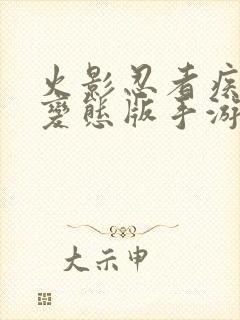 火影忍者疾
变态版手游
大示申